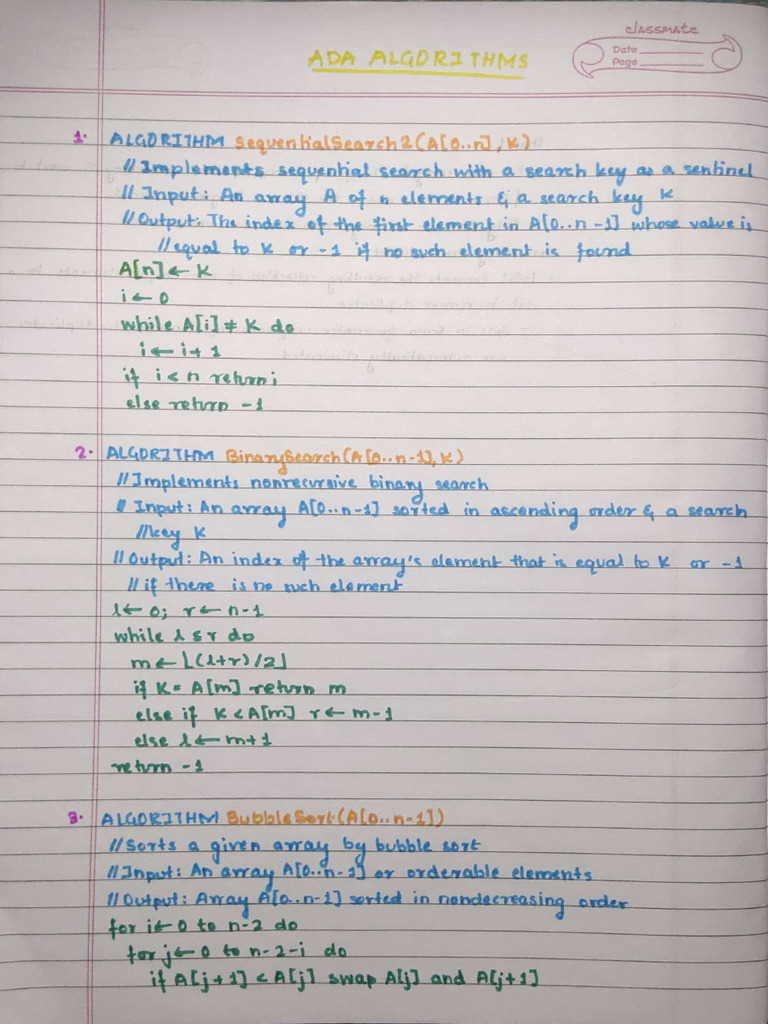 classmate
Date
Page
ADA ALGORITHMS
1. ALGORITHM SequentialSearch2(A[0..n], K)
// Implements sequential search with a search key as a sentinel
// Input: An array A of n elements & a search key K
// Output: The index of the first element in A[0..n-1] whose value is
// equal to K or -1 if no such element is found
A[n] ← K
i ← 0
while A[i] ≠ K do
i ← i + 1
if i < n return i
else return -1
2. ALGORITHM BinarySearch(A[0..n-1], K)
// Implements nonrecursive binary search
// Input: An array A[0..n-1] sorted in ascending order & a search
// key K
// Output: An index of the array's element that is equal to K or -1
// if there is no such element
l ← 0; r ← n-1
while l ≤ r do
m ← ⌊(l+r)/2⌋
if K = A[m] return m
else if K < A[m] r ← m-1
else l ← m+1
return -1
3. ALGORITHM BubbleSort(A[0..n-1])
// Sorts a given array by bubble sort
// Input: An array A[0..n-1] or orderable elements
// Output: Array A[0..n-1] sorted in nondecreasing order
for i ← 0 to n-2 do
for j ← 0 to n-2-i do
if A[j+1] < A[j] swap A[j] and A[j+1]